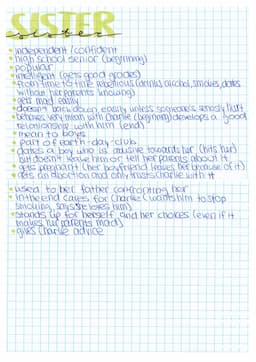 SISTER
sister
independent / confident
high school senior (beginning)
popular
intelligent (gets good grades)
from time to time rebellious (drinks alcohol, smokes, dates
without her parents knowing)
gets mad easily
doesn't back down easily unless someone's seriosly hurt
behaves very mean with Charlie (beginning) develops a good
relationship with him (end)
mean to boys
part of earth-day-club
dates a boy who is abusive towards her (hits her)
but doesn't leave him or tell her parents about it
gets pregnant (her boyfriend leaves her because of it)
gets an abortion and only trusts Charlie with it
used to her father confronting her
in the end cares for Charlie (wants him to stop
smoking, says she loves him)
stands up for herself and her choices (even if it
makes her parents mad)
gives Charlie advice